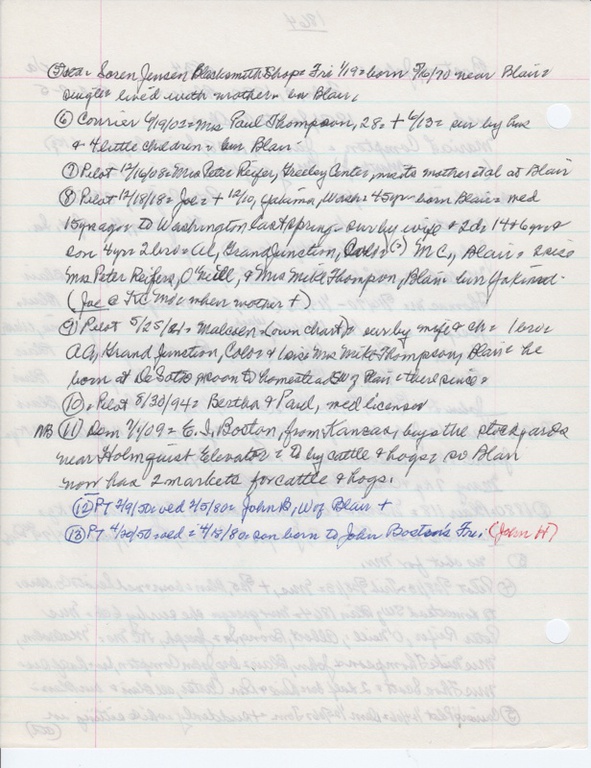 1864
Soren Jensen Blacksmith Shop = Fri 1/19 = born 5/16/70 near Blair =
single = lived with mother = in Blair,
⑥ Courier 6/19/02 = Mrs Paul Thompson, 28 = + 6/13 = sur by hus
& 4 little children = bur Blair =
⑦ Pilot 12/16/08 = Mrs Peter Reifer, Greeley Center, meets mother etal at Blair
⑧ Pilot 12/18/18 = Joe = + 12/10, Yakima, Wash = 45 yr = born Blair = med
15 yrs ago = to Washington last spring = sur by wife & 2 ds 14 & 6 yr &
son 4 yr = 2 bro = Al, Grand Junction, Colo & (?) MC, Blair = 2 sis =
Mrs Peter Reifers, O'Neill, & Mrs Mike Thompson, Blair = bur Yakima =
(Joe @ KC Mo = when mother +)
⑨ Pilot 5/25/21 = (on chart) = sur by wife & ch = 1 bro =
AA, Grand Junction, Colo = & 1 sis = Mrs Mike Thompson, Blair = he
born at DeSoto = soon to homestead SW of Blair = there since =
⑩ = Pilot 8/30/94 = Bertha & Paul, med license
NB ⑪ Dem 7/1/09 = E. J. Boston, from Kansas, buys the stockyards
near Holmquist Elevator = to by cattle & hogs = so Blair
now has 2 markets for cattle & hogs.
⑫ PT 2/9/50 = ved 2/5/80 = John B, W of Blair +
⑬ PT 4/20/50 = ved = 4/18/80 = son born to John Boston's Fri. (John H)